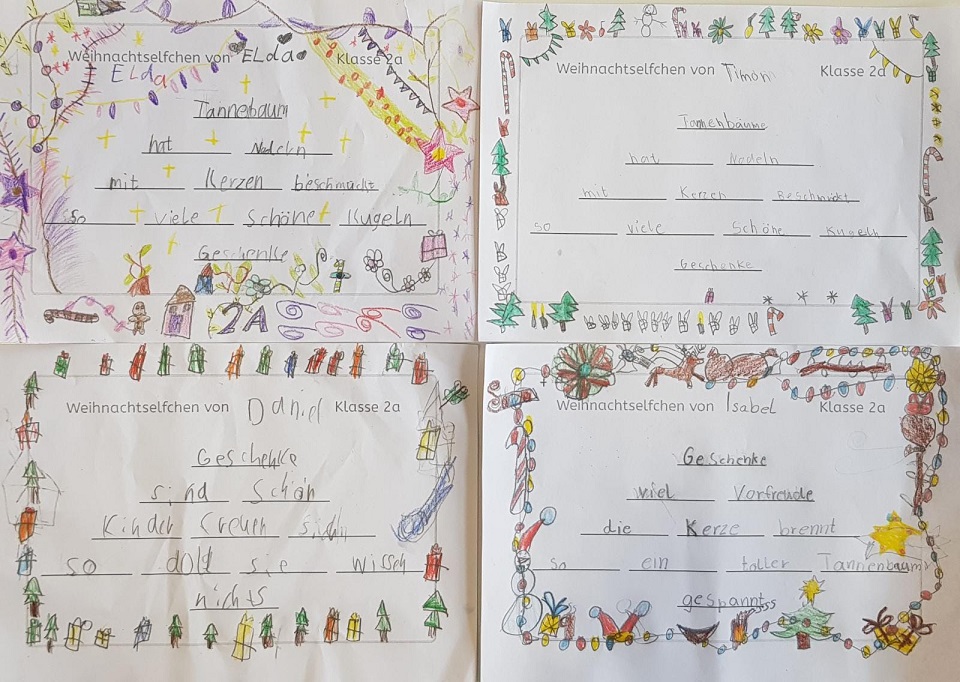 Weihnachtselfchen von ELda Klasse 2a
ELda
Tannenbaum
hat Nadeln
mit Kerzen beschmückt
so viele schöne Kugeln
Geschenke
2A
Weihnachtselfchen von Timon Klasse 2a
Tannenbäume
hat Nadeln
mit Kerzen Beschmückt
so viele Schöne Kugeln
Geschenke
Weihnachtselfchen von Daniel Klasse 2a
Geschenke
sind Schön
Kinder freuen sich
so doll sie wissen
nichts
Weihnachtselfchen von Isabel Klasse 2a
Geschenke
viel Vorfreude
die Kerze brennt
so ein toller Tannenbaum
gespannt